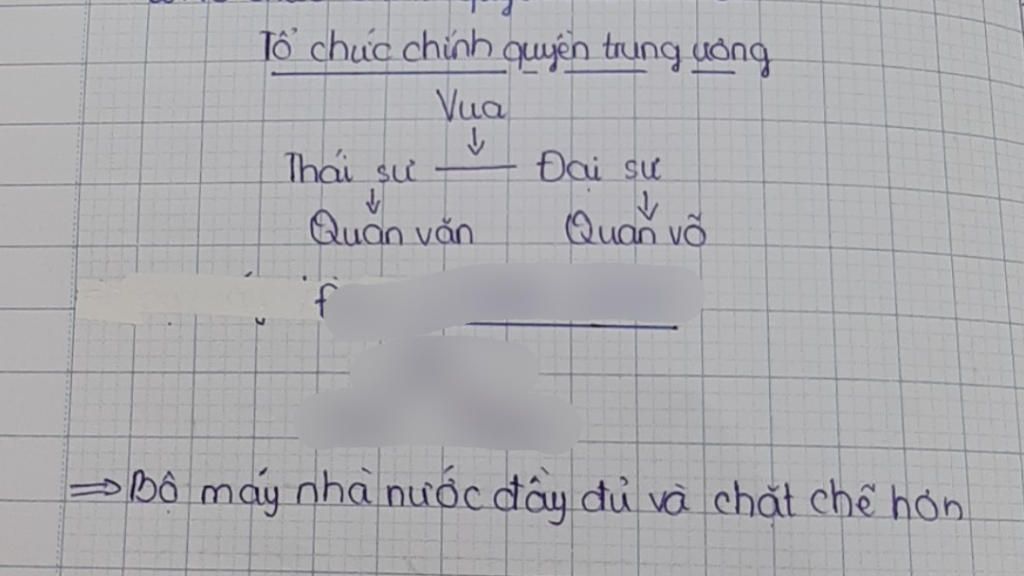 Tổ chức chính quyền trung ương
Vua
↓
Thái sư — Đại sư
↓ ↓
Quan văn Quan võ
⇒ Bộ máy nhà nước đầy đủ và chặt chẽ hơn